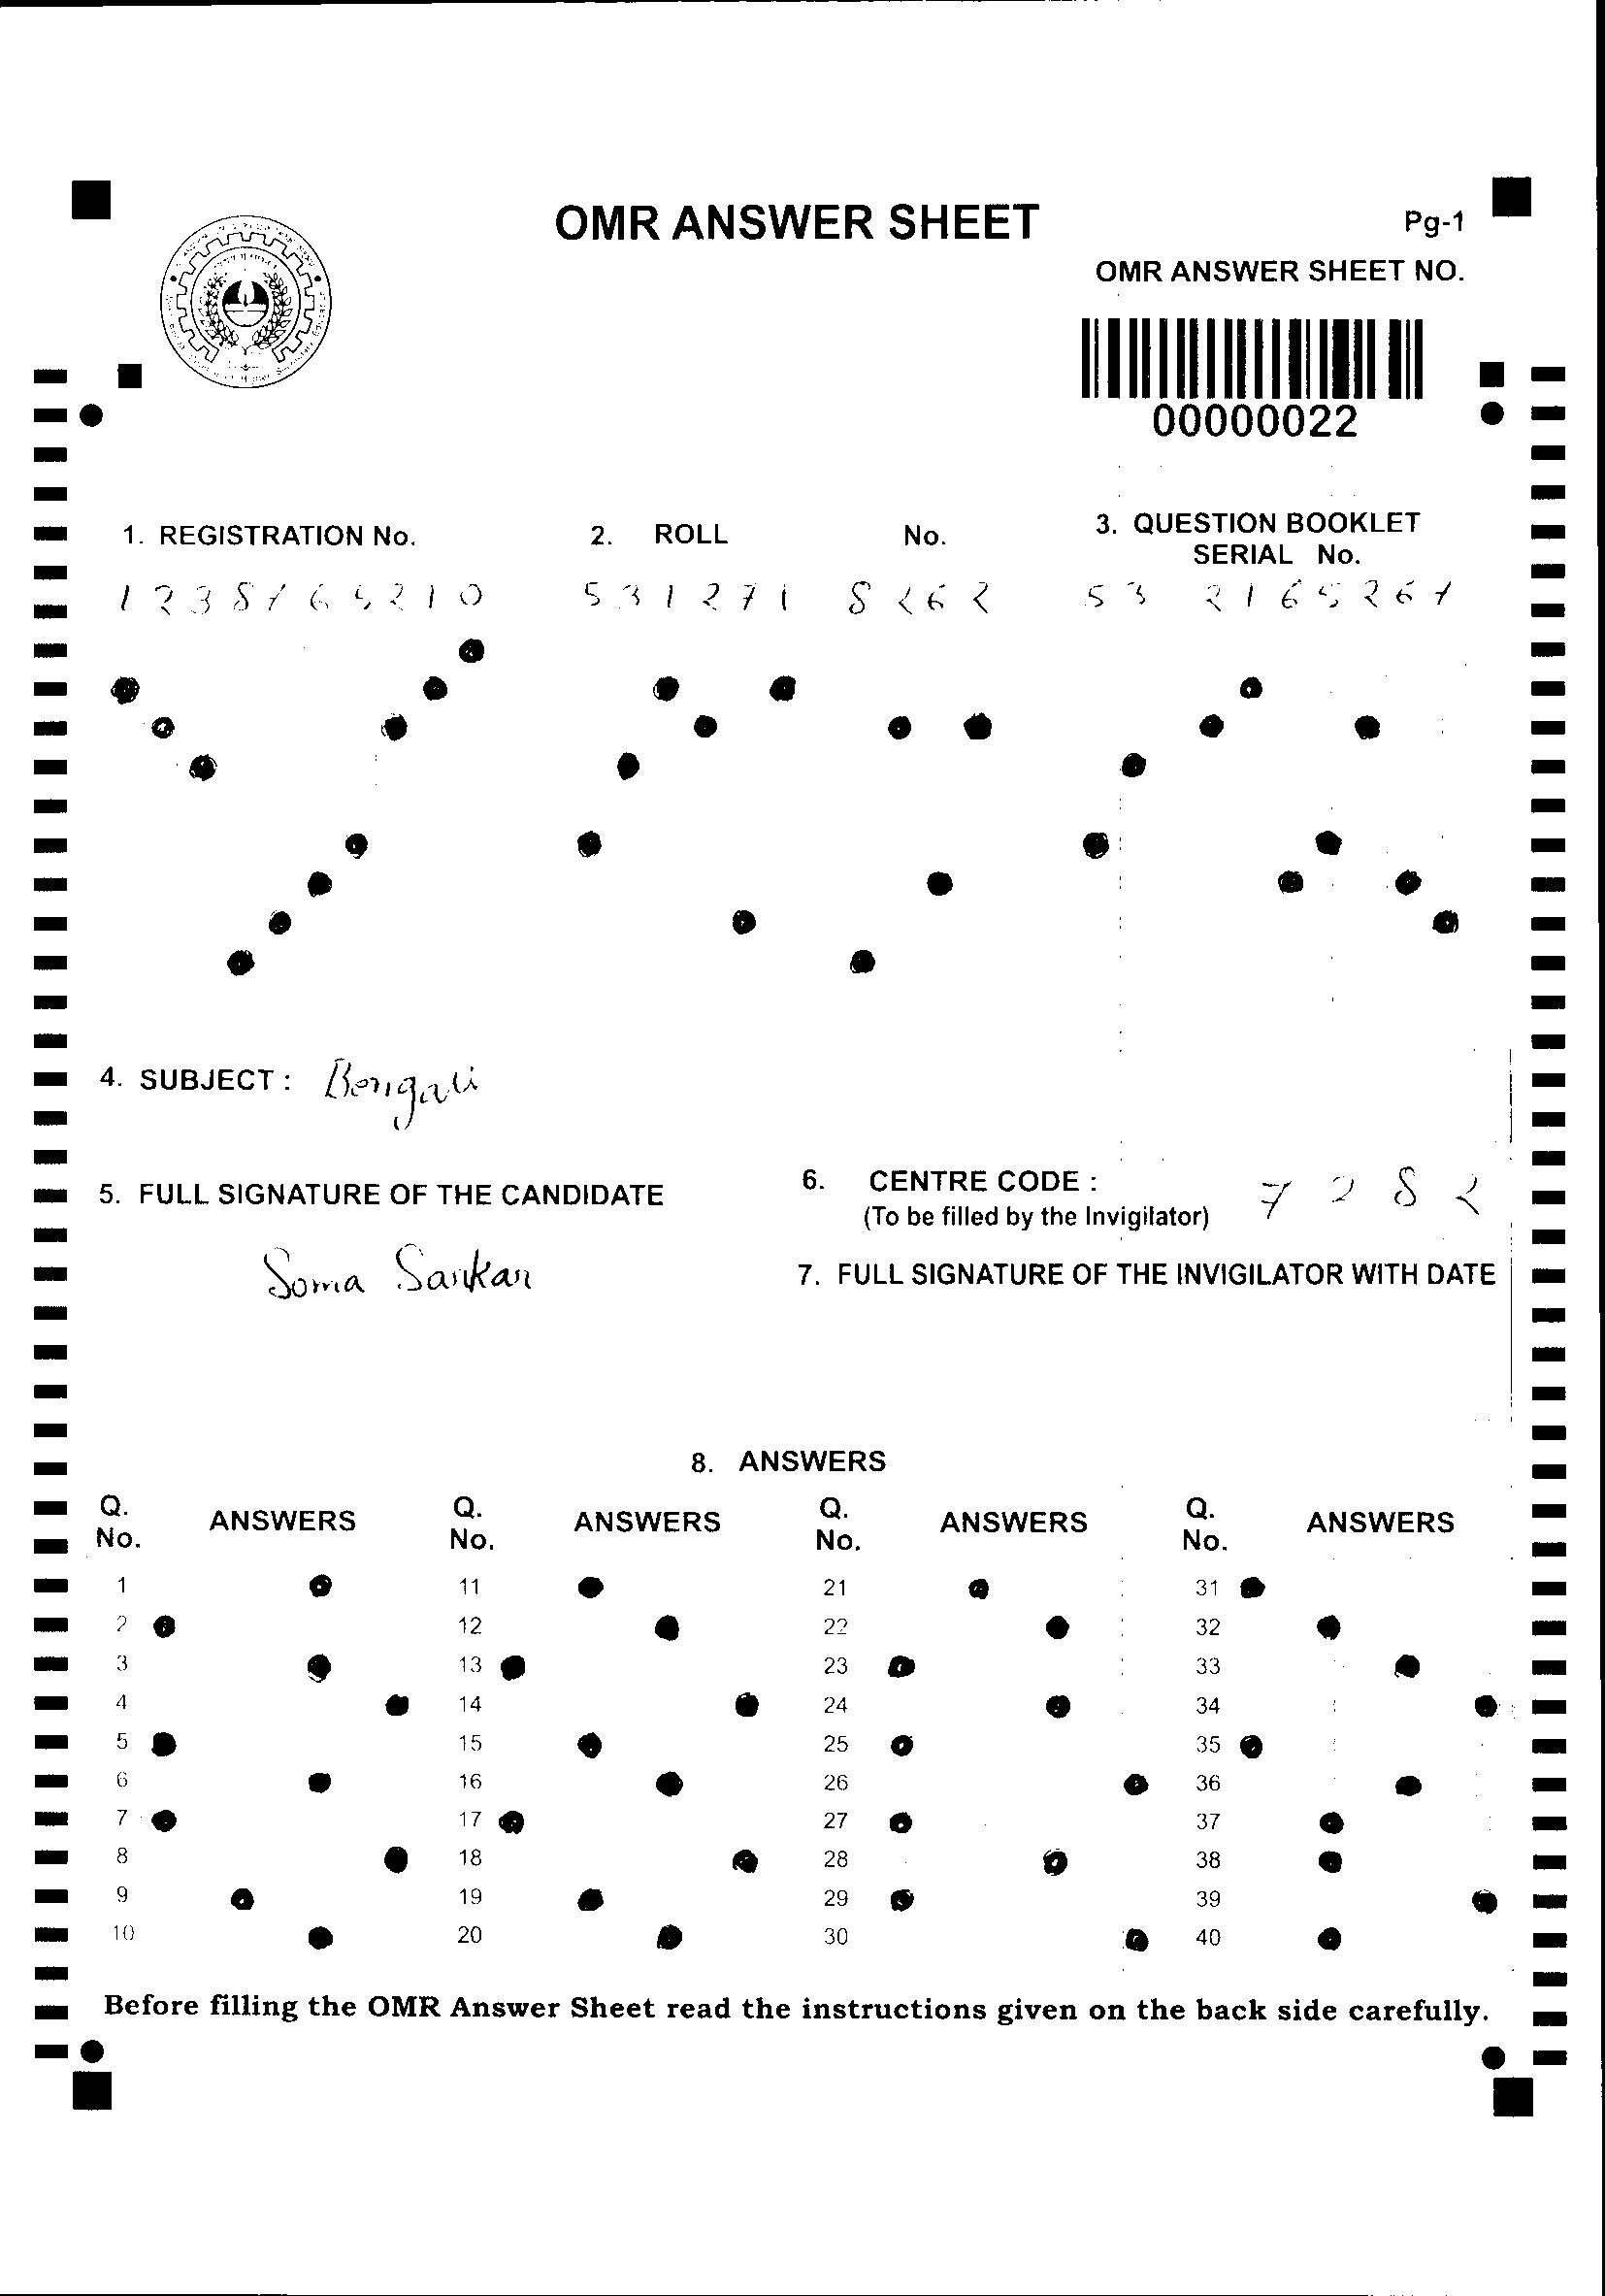 OMR ANSWER SHEET
Pg-1
OMR ANSWER SHEET NO.
00000022
1. REGISTRATION No.
2. ROLL No.
3. QUESTION BOOKLET
SERIAL No.
1238765210
531271 8262
53 2165267
4. SUBJECT : Bengali
5. FULL SIGNATURE OF THE CANDIDATE
Soma Sarkar
6. CENTRE CODE : 7282
(To be filled by the Invigilator)
7. FULL SIGNATURE OF THE INVIGILATOR WITH DATE
8. ANSWERS
Q. No. ANSWERS Q. No. ANSWERS Q. No. ANSWERS Q. No. ANSWERS
1 11 21 31
2 12 22 32
3 13 23 33
4 14 24 34
5 15 25 35
6 16 26 36
7 17 27 37
8 18 28 38
9 19 29 39
10 20 30 40
Before filling the OMR Answer Sheet read the instructions given on the back side carefully.